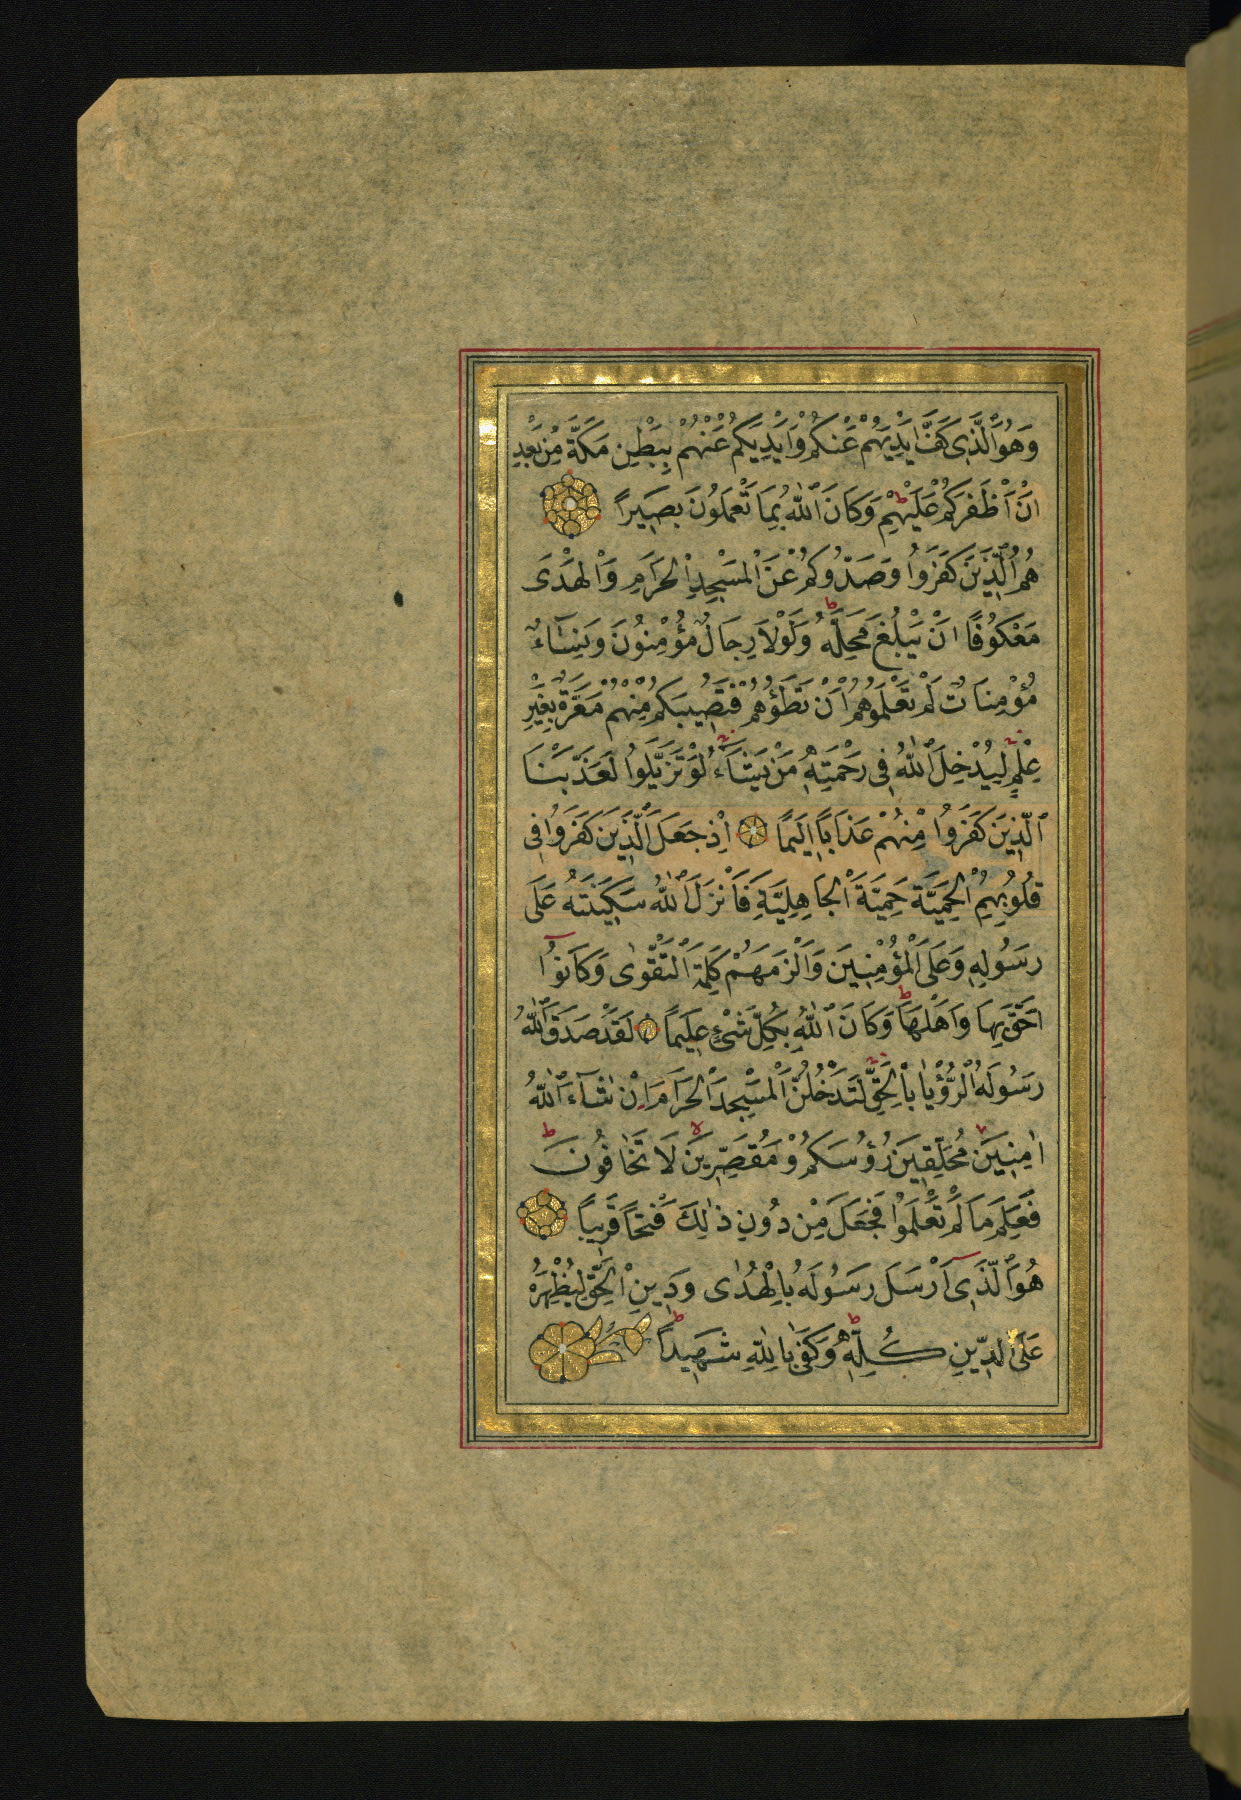 وَهُوَ الَّذِى كَفَّ اَيْدِيَهُمْ عَنْكُمْ وَاَيْدِيَكُمْ عَنْهُمْ بِبَطْنِ مَكَّةَ مِنْ بَعْدِ
اَنْ اَظْفَرَكُمْ عَلَيْهِمْ ط وَكَانَ اللّٰهُ بِمَا تَعْمَلُونَ بَصِيرًا
هُمُ الَّذِينَ كَفَرُوا وَصَدُّوكُمْ عَنِ الْمَسْجِدِ الْحَرَامِ وَالْهَدْىَ
مَعْكُوفًا اَنْ يَبْلُغَ مَحِلَّهُ ط وَلَوْلَا رِجَالٌ مُؤْمِنُونَ وَنِسَاءٌ
مُؤْمِنَاتٌ لَمْ تَعْلَمُوهُمْ اَنْ تَطَؤُهُمْ فَتُصِيبَكُمْ مِنْهُمْ مَعَرَّةٌ بِغَيْرِ
عِلْمٍ لِيُدْخِلَ اللّٰهُ فِى رَحْمَتِهِ مَنْ يَشَاءُ لَوْ تَزَيَّلُوا لَعَذَّبْنَا
الَّذِينَ كَفَرُوا مِنْهُمْ عَذَابًا اَلِيمًا اِذْ جَعَلَ الَّذِينَ كَفَرُوا فِى
قُلُوبِهِمُ الْحَمِيَّةَ حَمِيَّةَ الْجَاهِلِيَّةِ فَاَنْزَلَ اللّٰهُ سَكِينَتَهُ عَلَى
رَسُولِهِ وَعَلَى الْمُؤْمِنِينَ وَاَلْزَمَهُمْ كَلِمَةَ التَّقْوٰى وَكَانُوا
اَحَقَّ بِهَا وَاَهْلَهَا ط وَكَانَ اللّٰهُ بِكُلِّ شَىْءٍ عَلِيمًا لَقَدْ صَدَقَ اللّٰهُ
رَسُولَهُ الرُّؤْيَا بِالْحَقِّ لَتَدْخُلُنَّ الْمَسْجِدَ الْحَرَامَ اِنْ شَاءَ اللّٰهُ
اٰمِنِينَ مُحَلِّقِينَ رُؤُسَكُمْ وَمُقَصِّرِينَ لا لَا تَخَافُونَ ط
فَعَلِمَ مَا لَمْ تَعْلَمُوا فَجَعَلَ مِنْ دُونِ ذٰلِكَ فَتْحًا قَرِيبًا
هُوَ الَّذِى اَرْسَلَ رَسُولَهُ بِالْهُدٰى وَدِينِ الْحَقِّ لِيُظْهِرَهُ
عَلَى الدِّينِ كُلِّهِ ط وَكَفٰى بِاللّٰهِ شَهِيدًا ط